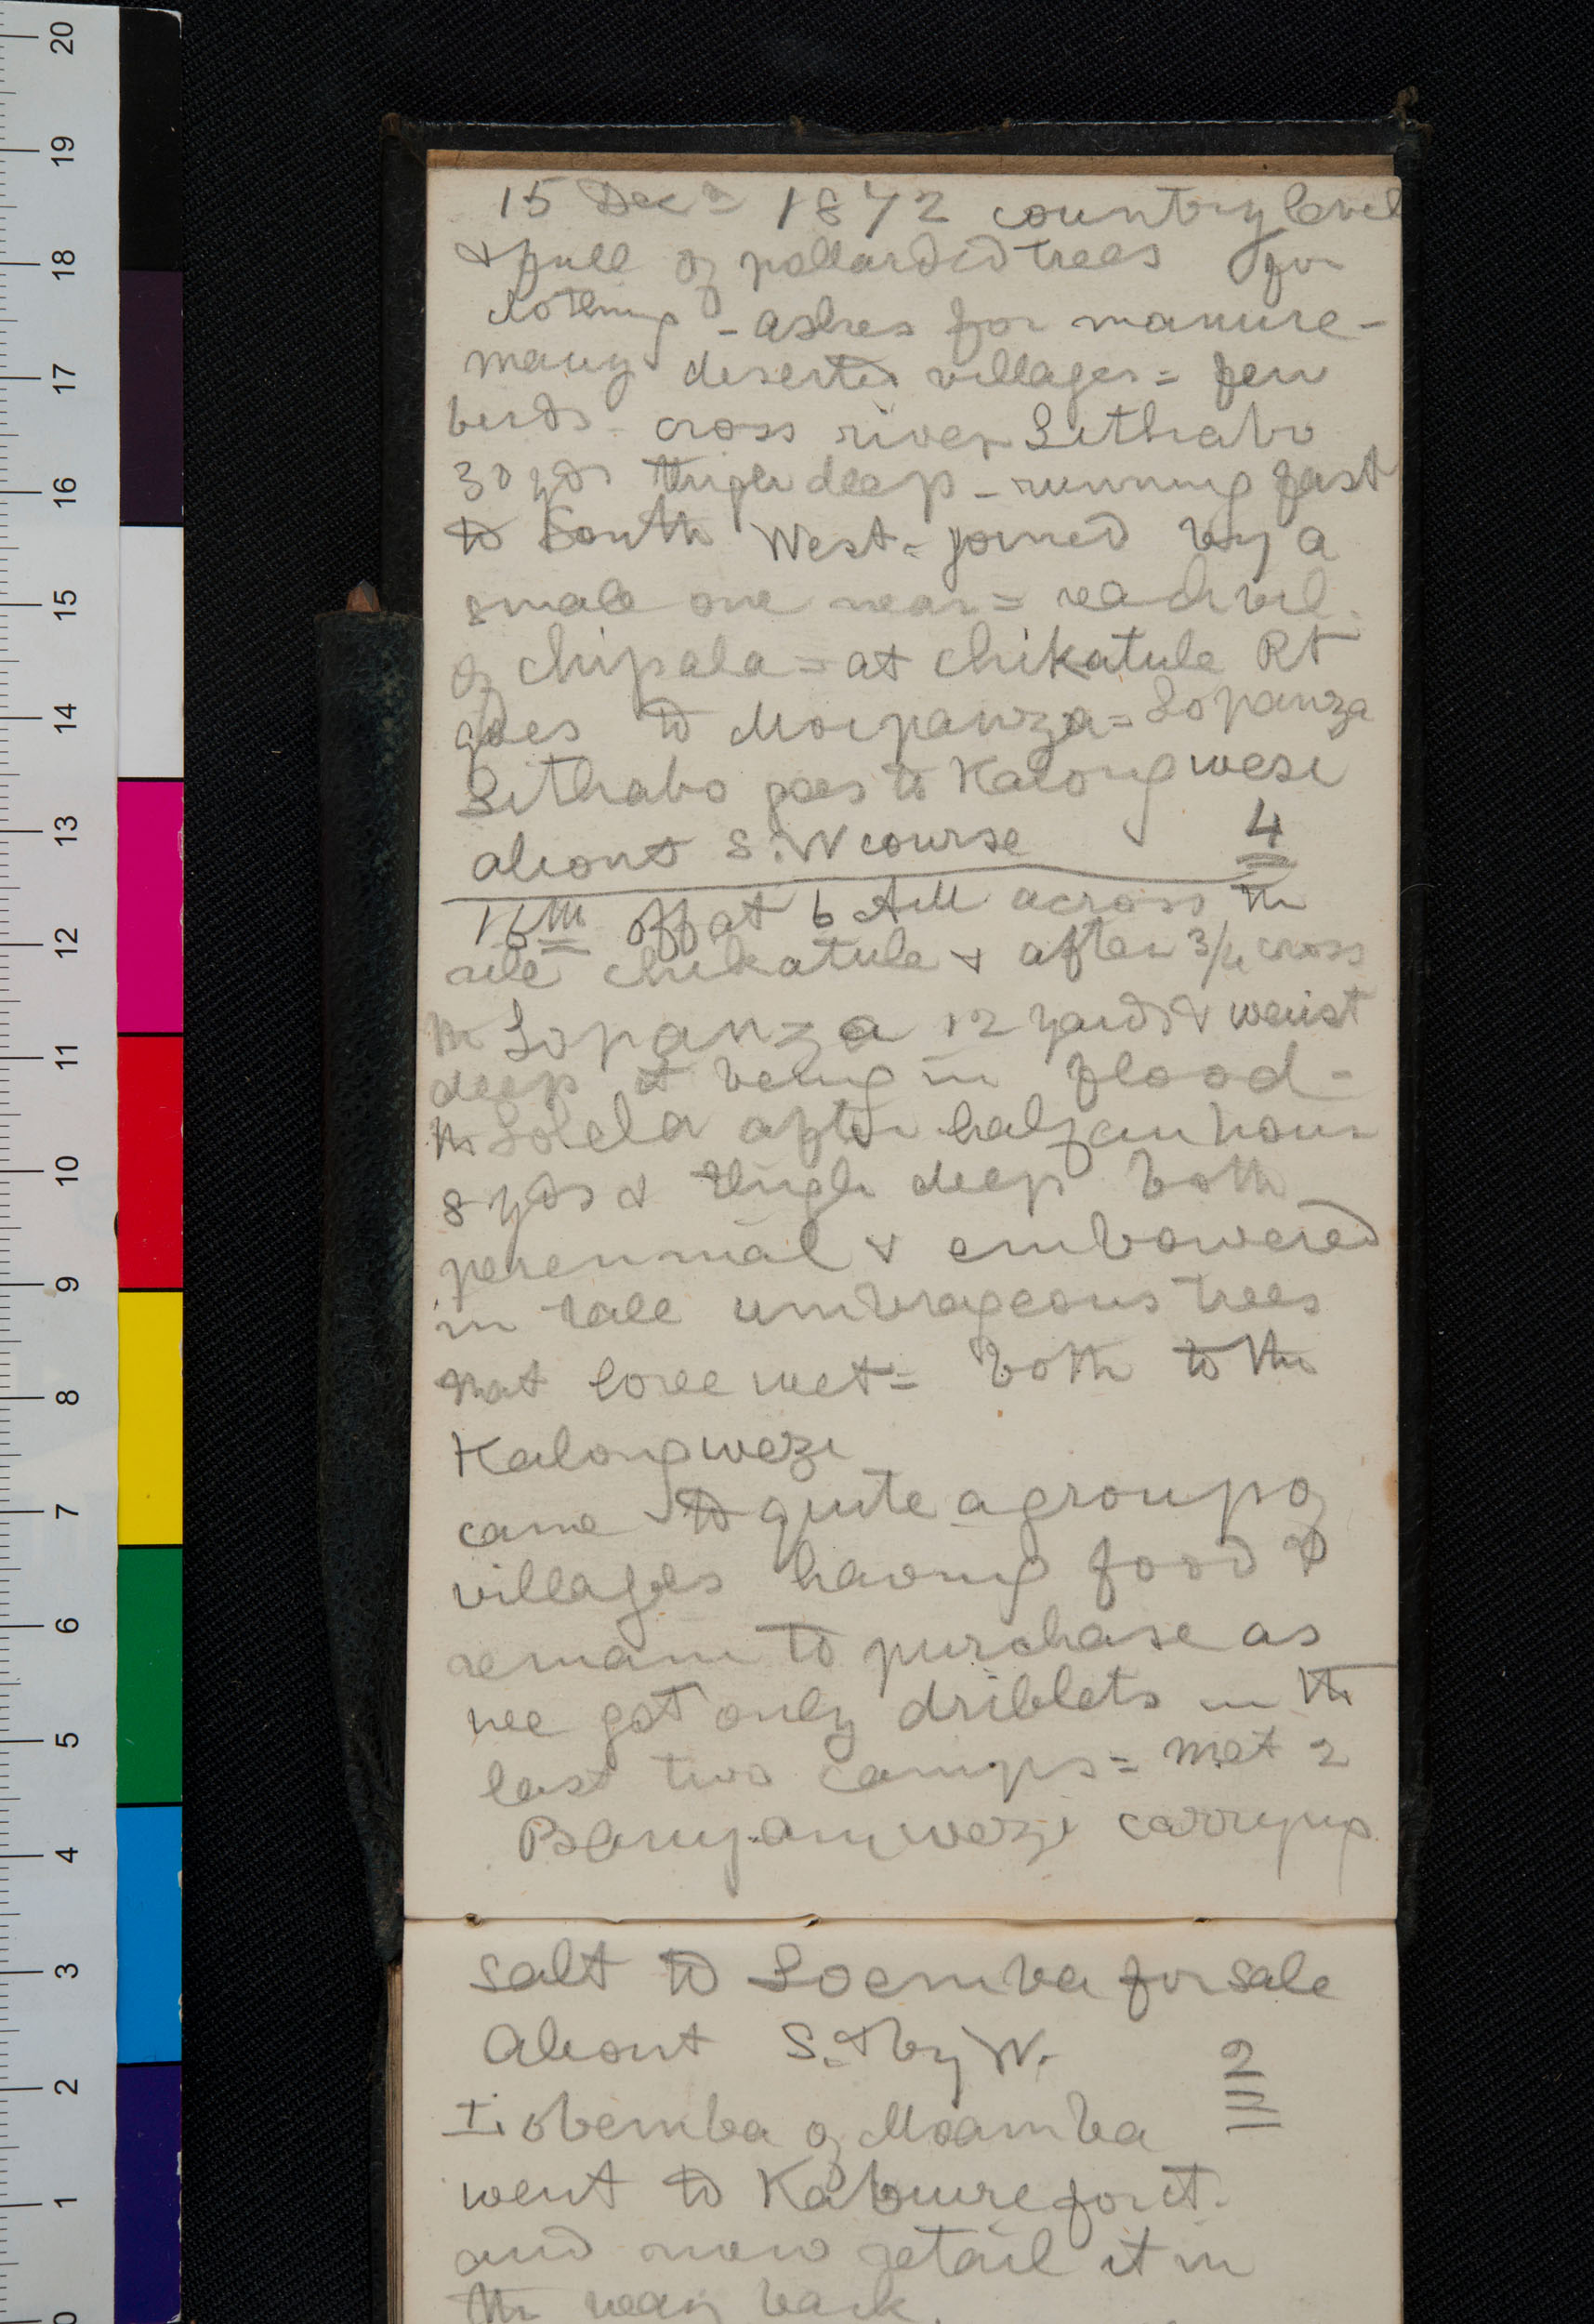 15 Decr 1872 country level
& full of pollarded trees for
clothing - ashes for manure -
many deserted villages = few
birds - cross river Lithabo
30 yds thigh deep - running fast
to South West - joined by a
small one near = reach vil.
of Chipala = at Chikatule Rt
goes to Moipanza = Lopanza
Lithabo goes to Kalongwesi
about S. W course 4
16th off at 6 AM across the
rile Chikatule & after 3/4 cross
the Lopanza 12 yards & waist
deep it being in flood -
the Lolela after half an hour
8 yds & thigh deep both
perennial & embowered
in tall umbrageous trees
that love wet = both to the
Kalongwezi
came to quite a group of
villages having food &
remain to purchase as
we got only driblets in the
last two camps = met 2
Banyamwezi carrying
salt to Loemba for sale
About S. & by W. 2
I. obemba of Moamba
went to Kabuire for it.
and now retail it in
the way back.